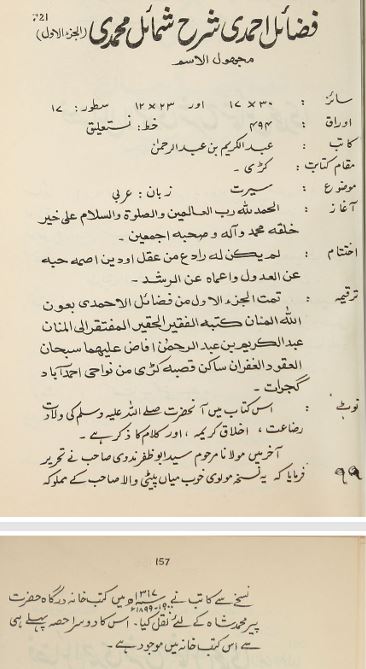 221
فضائل احمدی شرح شمائل محمدی (الجزء الاول)
مجهول الاسم
سائز : ۳۰ × ۱۷ اور ۲۳ × ۱۲ سطور: ۱۷
اوراق : ۴۹۴ خط: نستعلیق
کاتب : عبد الکریم بن عبد الرحمٰن
مقام کتابت : کڑی۔
موضوع : سیرت زبان: عربی
آغاز : الحمد للہ رب العالمین والصلوة والسلام علی خیر
خلقه محمد وآله و صحبه اجمعین ۔
اختتام : لم یکن له رادع من عقل اودین اصمه حبه
عن العدول واعماه عن الرشد۔
ترقیمہ : تمت الجزء الاول من فضائل الاحمدی بعون
الله المنان کتبه الفقیر الحقیر المفتقر الی المنان
عبد الکریم بن عبد الرحمٰن افاض علیهما سبحان
العقود الغفران ساکن قصبه کڑی من نواحی احمد آباد
گجرات ۔
نوٹ : اس کتاب میں آنحضرت صلے اللہ علیہ وسلم کی ولادت
رضاعت ، اخلاق کریمہ ، اور کلام کا ذکر ہے ۔
آخر میں مولانا مرحوم سید ابو ظفر ندوی صاحب نے تحریر
۹۹ فرمایا کہ یہ نسخہ مولوی خوب میاں پیٹی والا صاحب کے مملوکہ
157
نسخے سے کاتب نے ۱۳۱۷ھ میں کتب خانہ درگاہ حضرت
۱۹۰۰-۱۸۹۹ء
پیر محمد شاہ کے لئے نقل کیا۔ اس کا دوسرا حصہ پہلے ہی
سے اس کتب خانہ میں موجود ہے۔